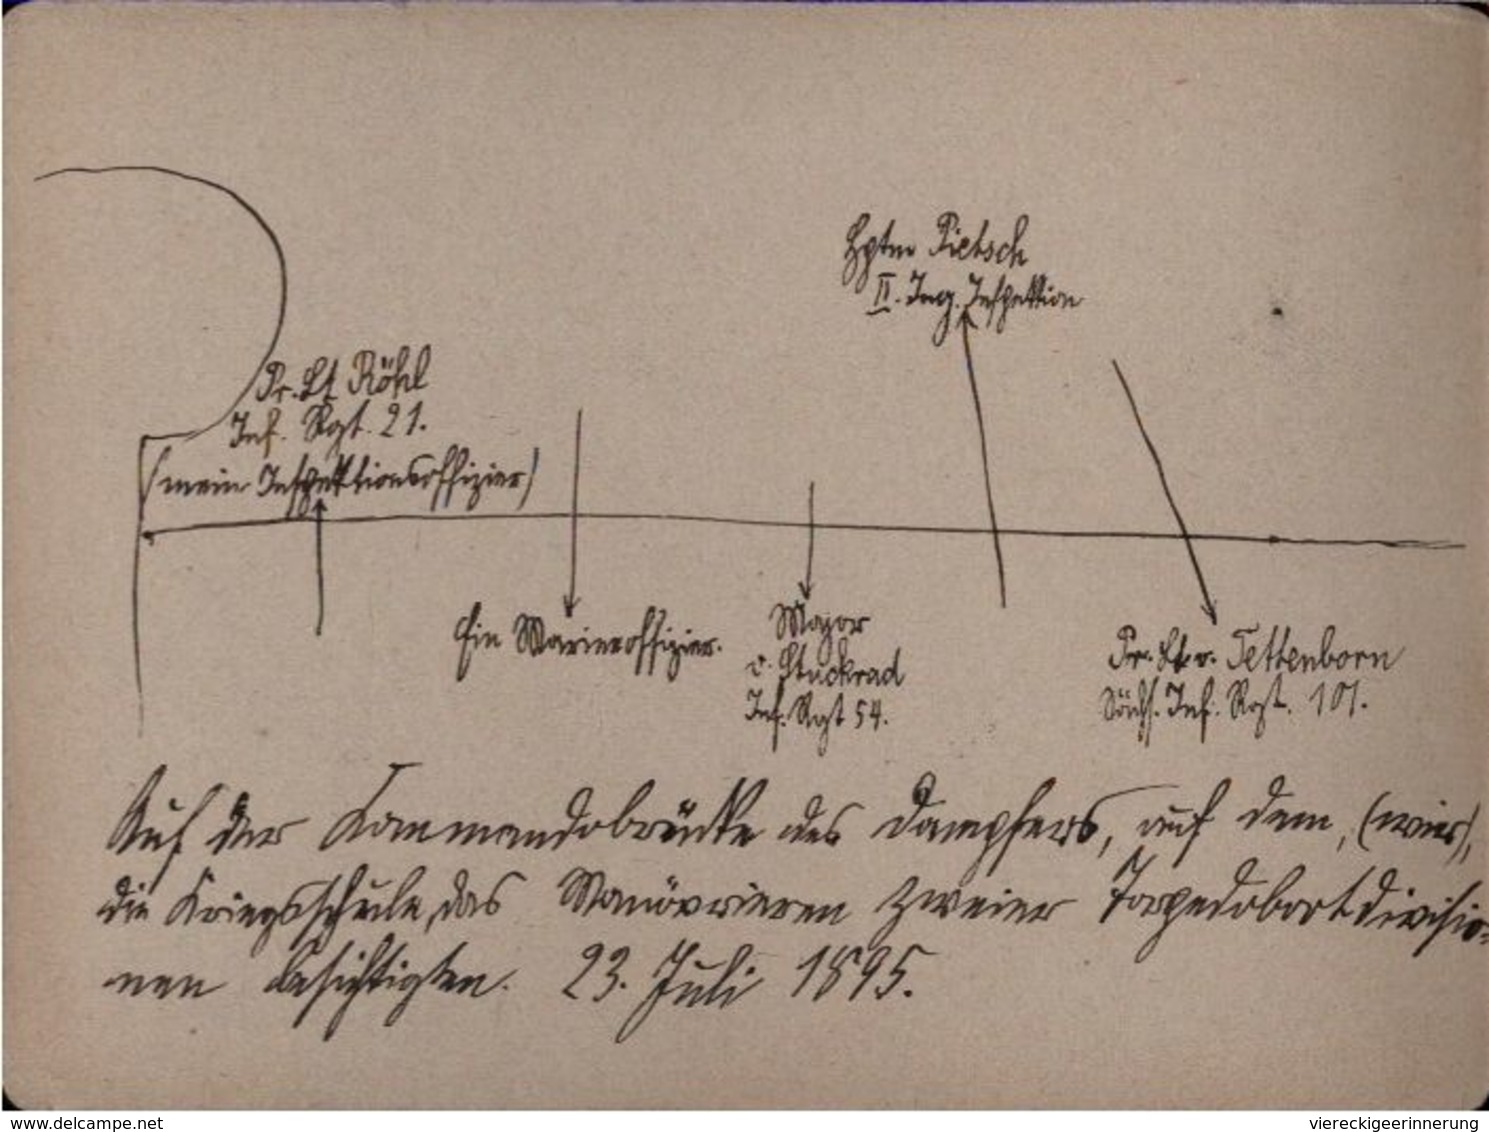 Hptm Pietsch
II. Ing. Inspektion
Pr. Lt Röhl
Inf. Rgt. 21.
(mein Inspektionsoffizier)
Ein Marineoffizier.
Major
v. Stuckrad
Inf. Rgt 54.
Pr. Lt. v. Tettenborn
Sächs. Inf. Rgt. 101.
Auf der Kommandobrücke des Dampfers, auf dem, (wir),
die Kriegsschule, das Manövrieren zweier Torpedobootdivisio-
nen besichtigten. 23. Juli 1895.
www.delcampe.net
viereckigeerinnerung